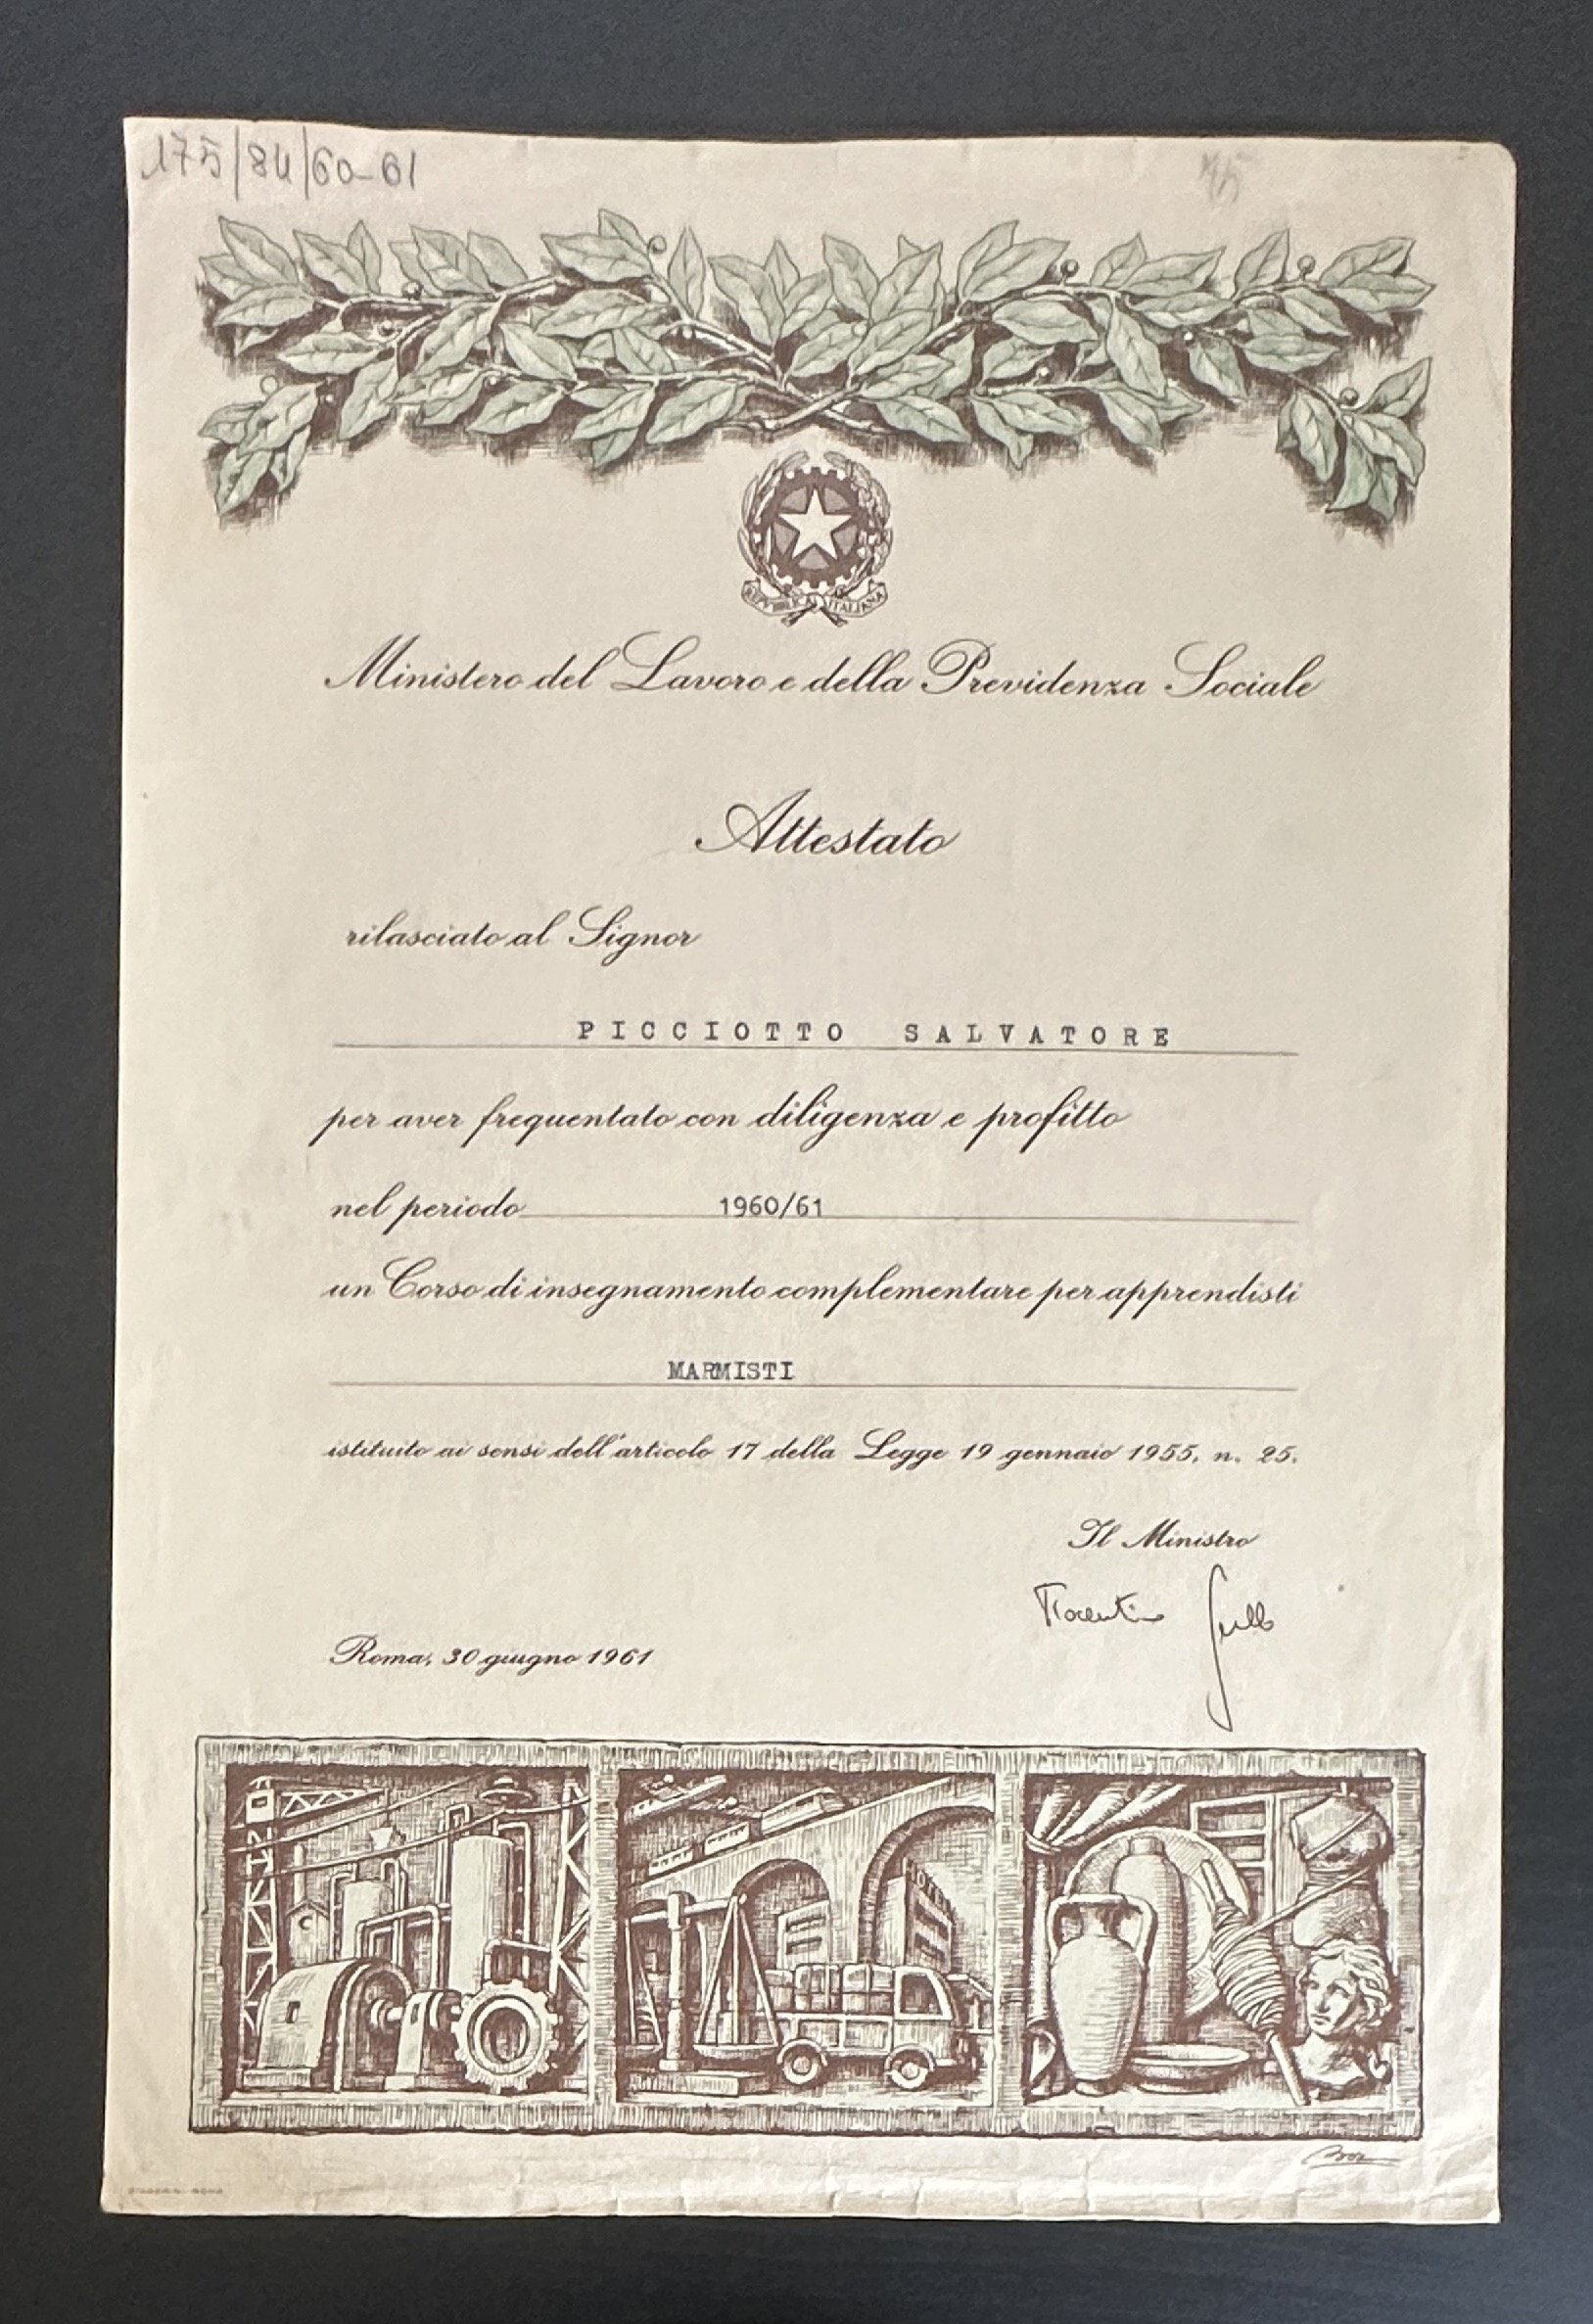 175/84/60-61
REPVBBLICA ITALIANA
Ministero del Lavoro e della Previdenza Sociale
Attestato
rilasciato al Signor
PICCIOTTO SALVATORE
per aver frequentato con diligenza e profitto
nel periodo 1960/61
un Corso di insegnamento complementare per apprendisti
MARMISTI
istituito ai sensi dell'articolo 17 della Legge 19 gennaio 1955, n. 25.
Il Ministro
Fiorentino Sullo
Roma, 30 giugno 1961